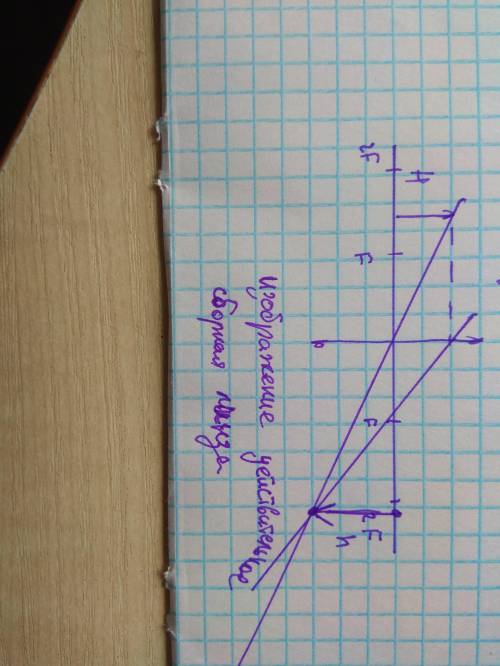 2F
H
F
F
2F
h
Изображение действительное
сборная линза